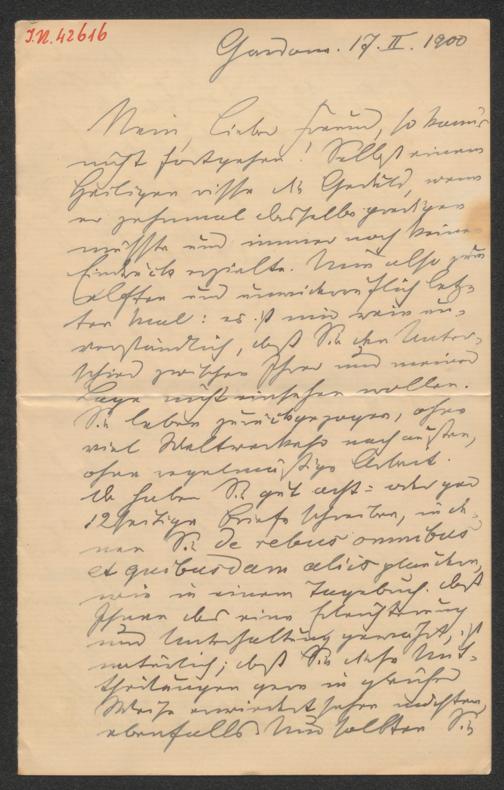 J.N. 42616
Gardone. 17. II. 1900
Nein, lieber Freund, so kann's
nicht fortgehen! Selbst einem
Heiligen risse die Geduld, wenn
er zehnmal dasselbe predigen
müsste und immer noch keinen
Eindruck erzielte. Nun also zum
elften und unwiderruflich letz-
ten Mal: es ist mir rein un-
verständlich, daß Sie den Unter-
schied zwischen Ihrer und meiner
Lage nicht einsehen wollen.
Sie leben zurückgezogen, ohne
viel Weltverkehr nach außen,
ohne regelmäßige Arbeit.
Da haben Sie gut acht- oder gar
12seitige Briefe schreiben, in de-
nen Sie de rebus omnibus
et quibusdam aliis plaudern,
wie in einem Tagebuch. Daß
Ihnen das eine Erleichterung
und Unterhaltung gewährt, ist
natürlich; daß Sie diese Mit-
theilungen gern in gleicher
Weise erwidert sehen möchten,
ebenfalls. Nun sollten Sie